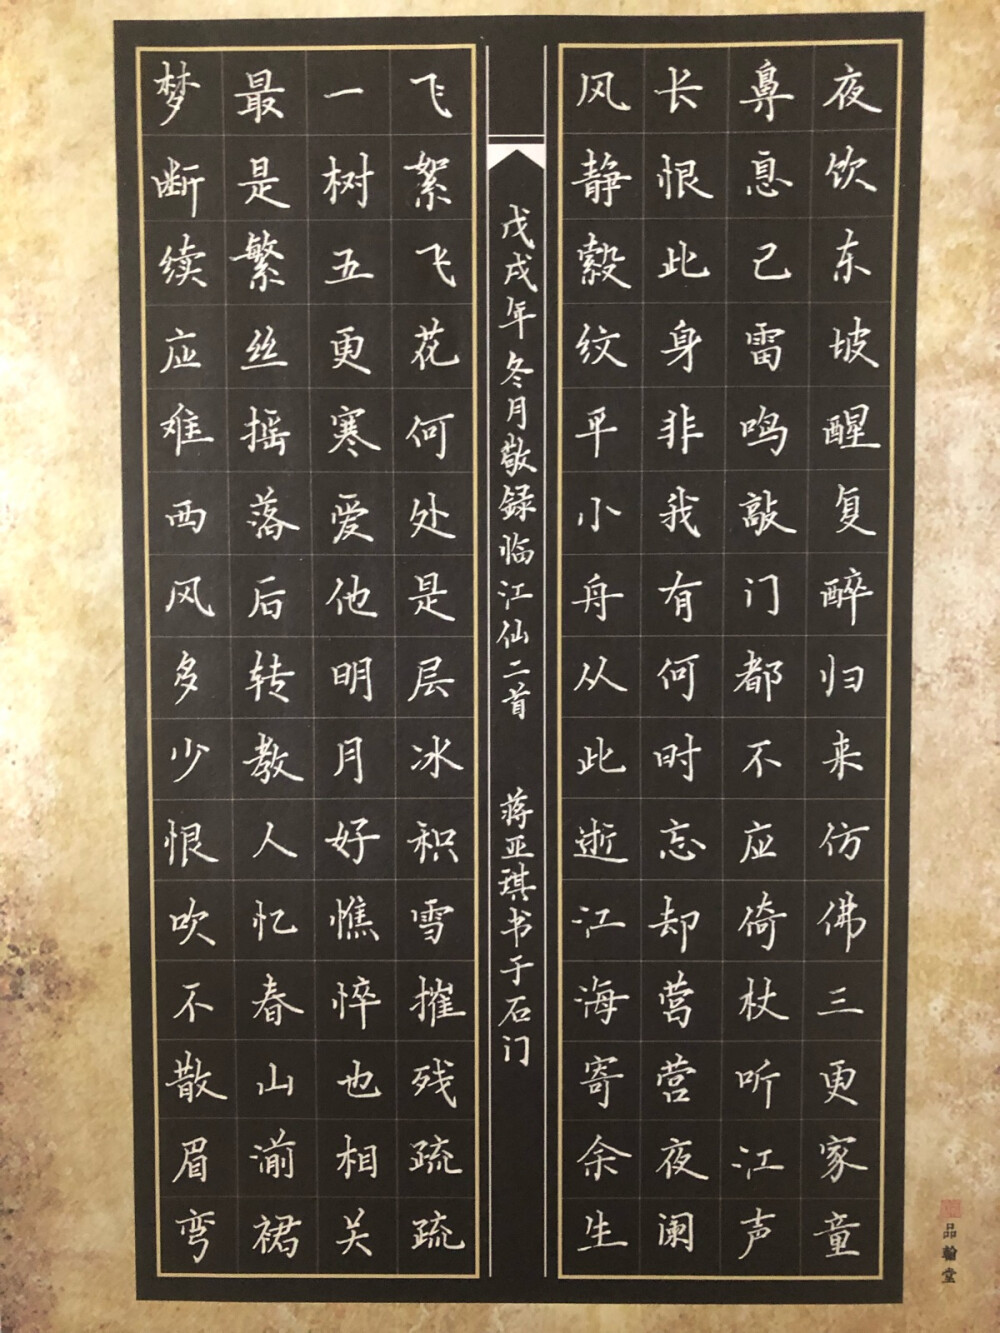 夜饮东坡醒复醉归来仿佛三更家童
鼻息已雷鸣敲门都不应倚杖听江声
长恨此身非我有何时忘却营营夜阑
风静縠纹平小舟从此逝江海寄余生
戊戌年冬月敬録临江仙二首 蒋亚琪书于石门
飞絮飞花何处是层冰积雪摧残疏疏
一树五更寒爱他明月好憔悴也相关
最是繁丝摇落后转教人忆春山湔裙
梦断续应难西风多少恨吹不散眉弯
品翰堂